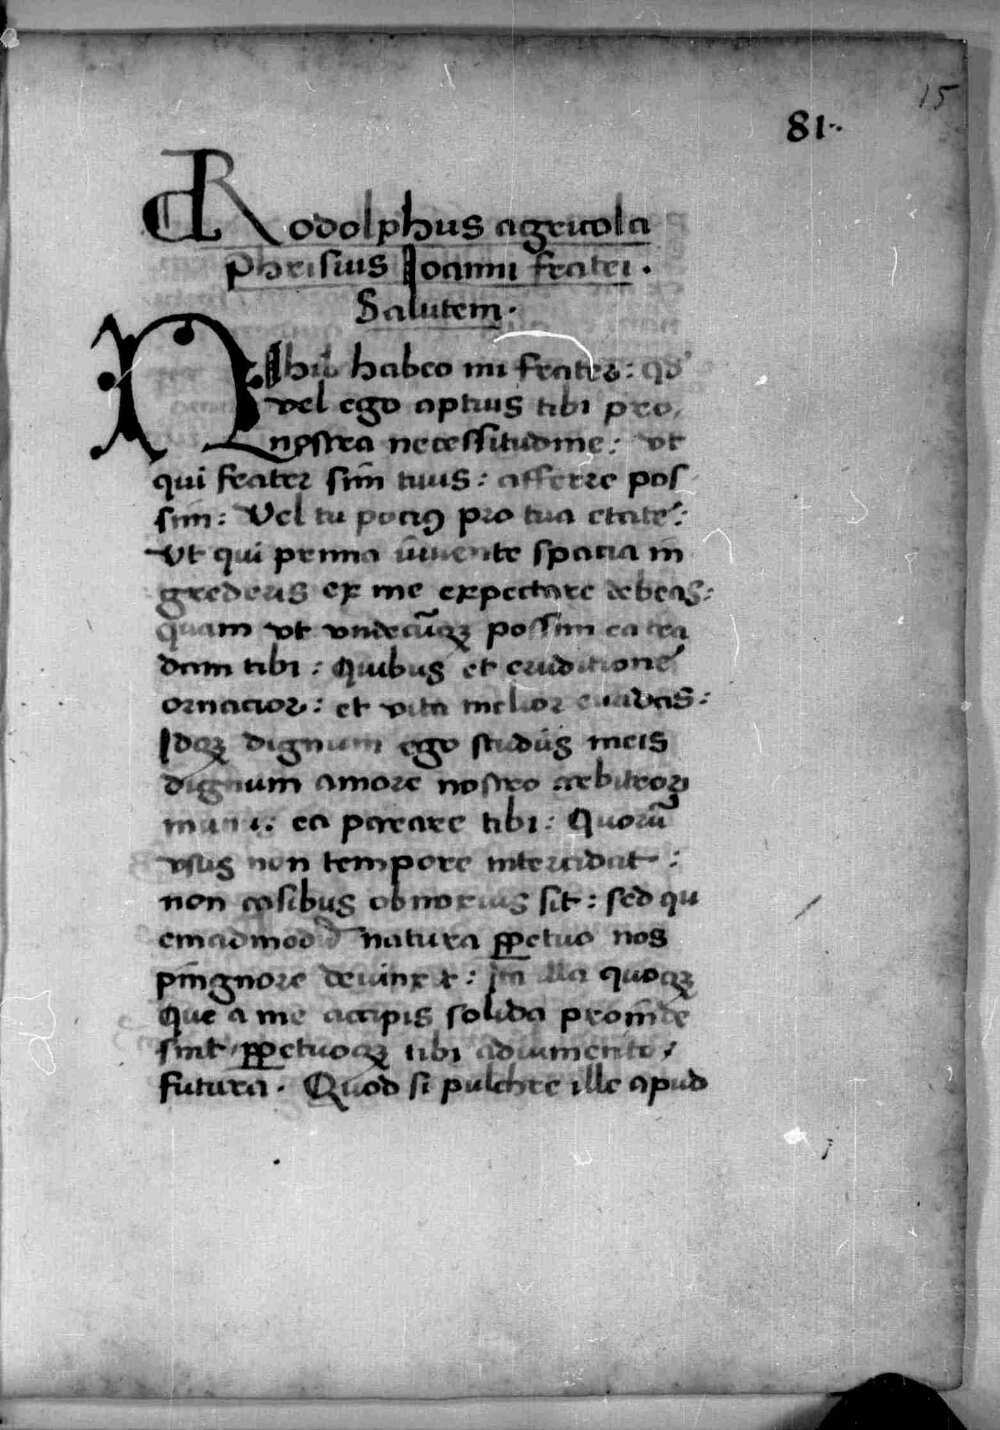 15
81..
Rodolphus agricola
Phrisius Ioanni fratri.
Salutem.
Nihil habeo mi frater: qd'
vel ego aptius tibi pro,
nostra necessitudine: vt
qui frater sim tuus: afferre pos
sim: Vel tu pociꝰ pro tua etate:
Vt qui prima iuuente spacia in
grederis ex me expectare debeas:
quam vt vndecūqꝫ possim ea tra
dam tibi: Quibus et eruditione
ornacior: et vita melior euadas:
Idqꝫ dignum ego studiis meis
dignum amore nostro arbitror
mun: ea parare tibi: Quorū
vsus non tempore intercidat:
non casibus obnoxius sit: sed qu
emadmodū natura ꝑpetuo nos
pingnore deuinxit: Ita illa quoqꝫ
Que a me accipis solida proinde
sint ꝑpetuoqꝫ tibi adiumento,
futura. Quod si pulchre ille apud